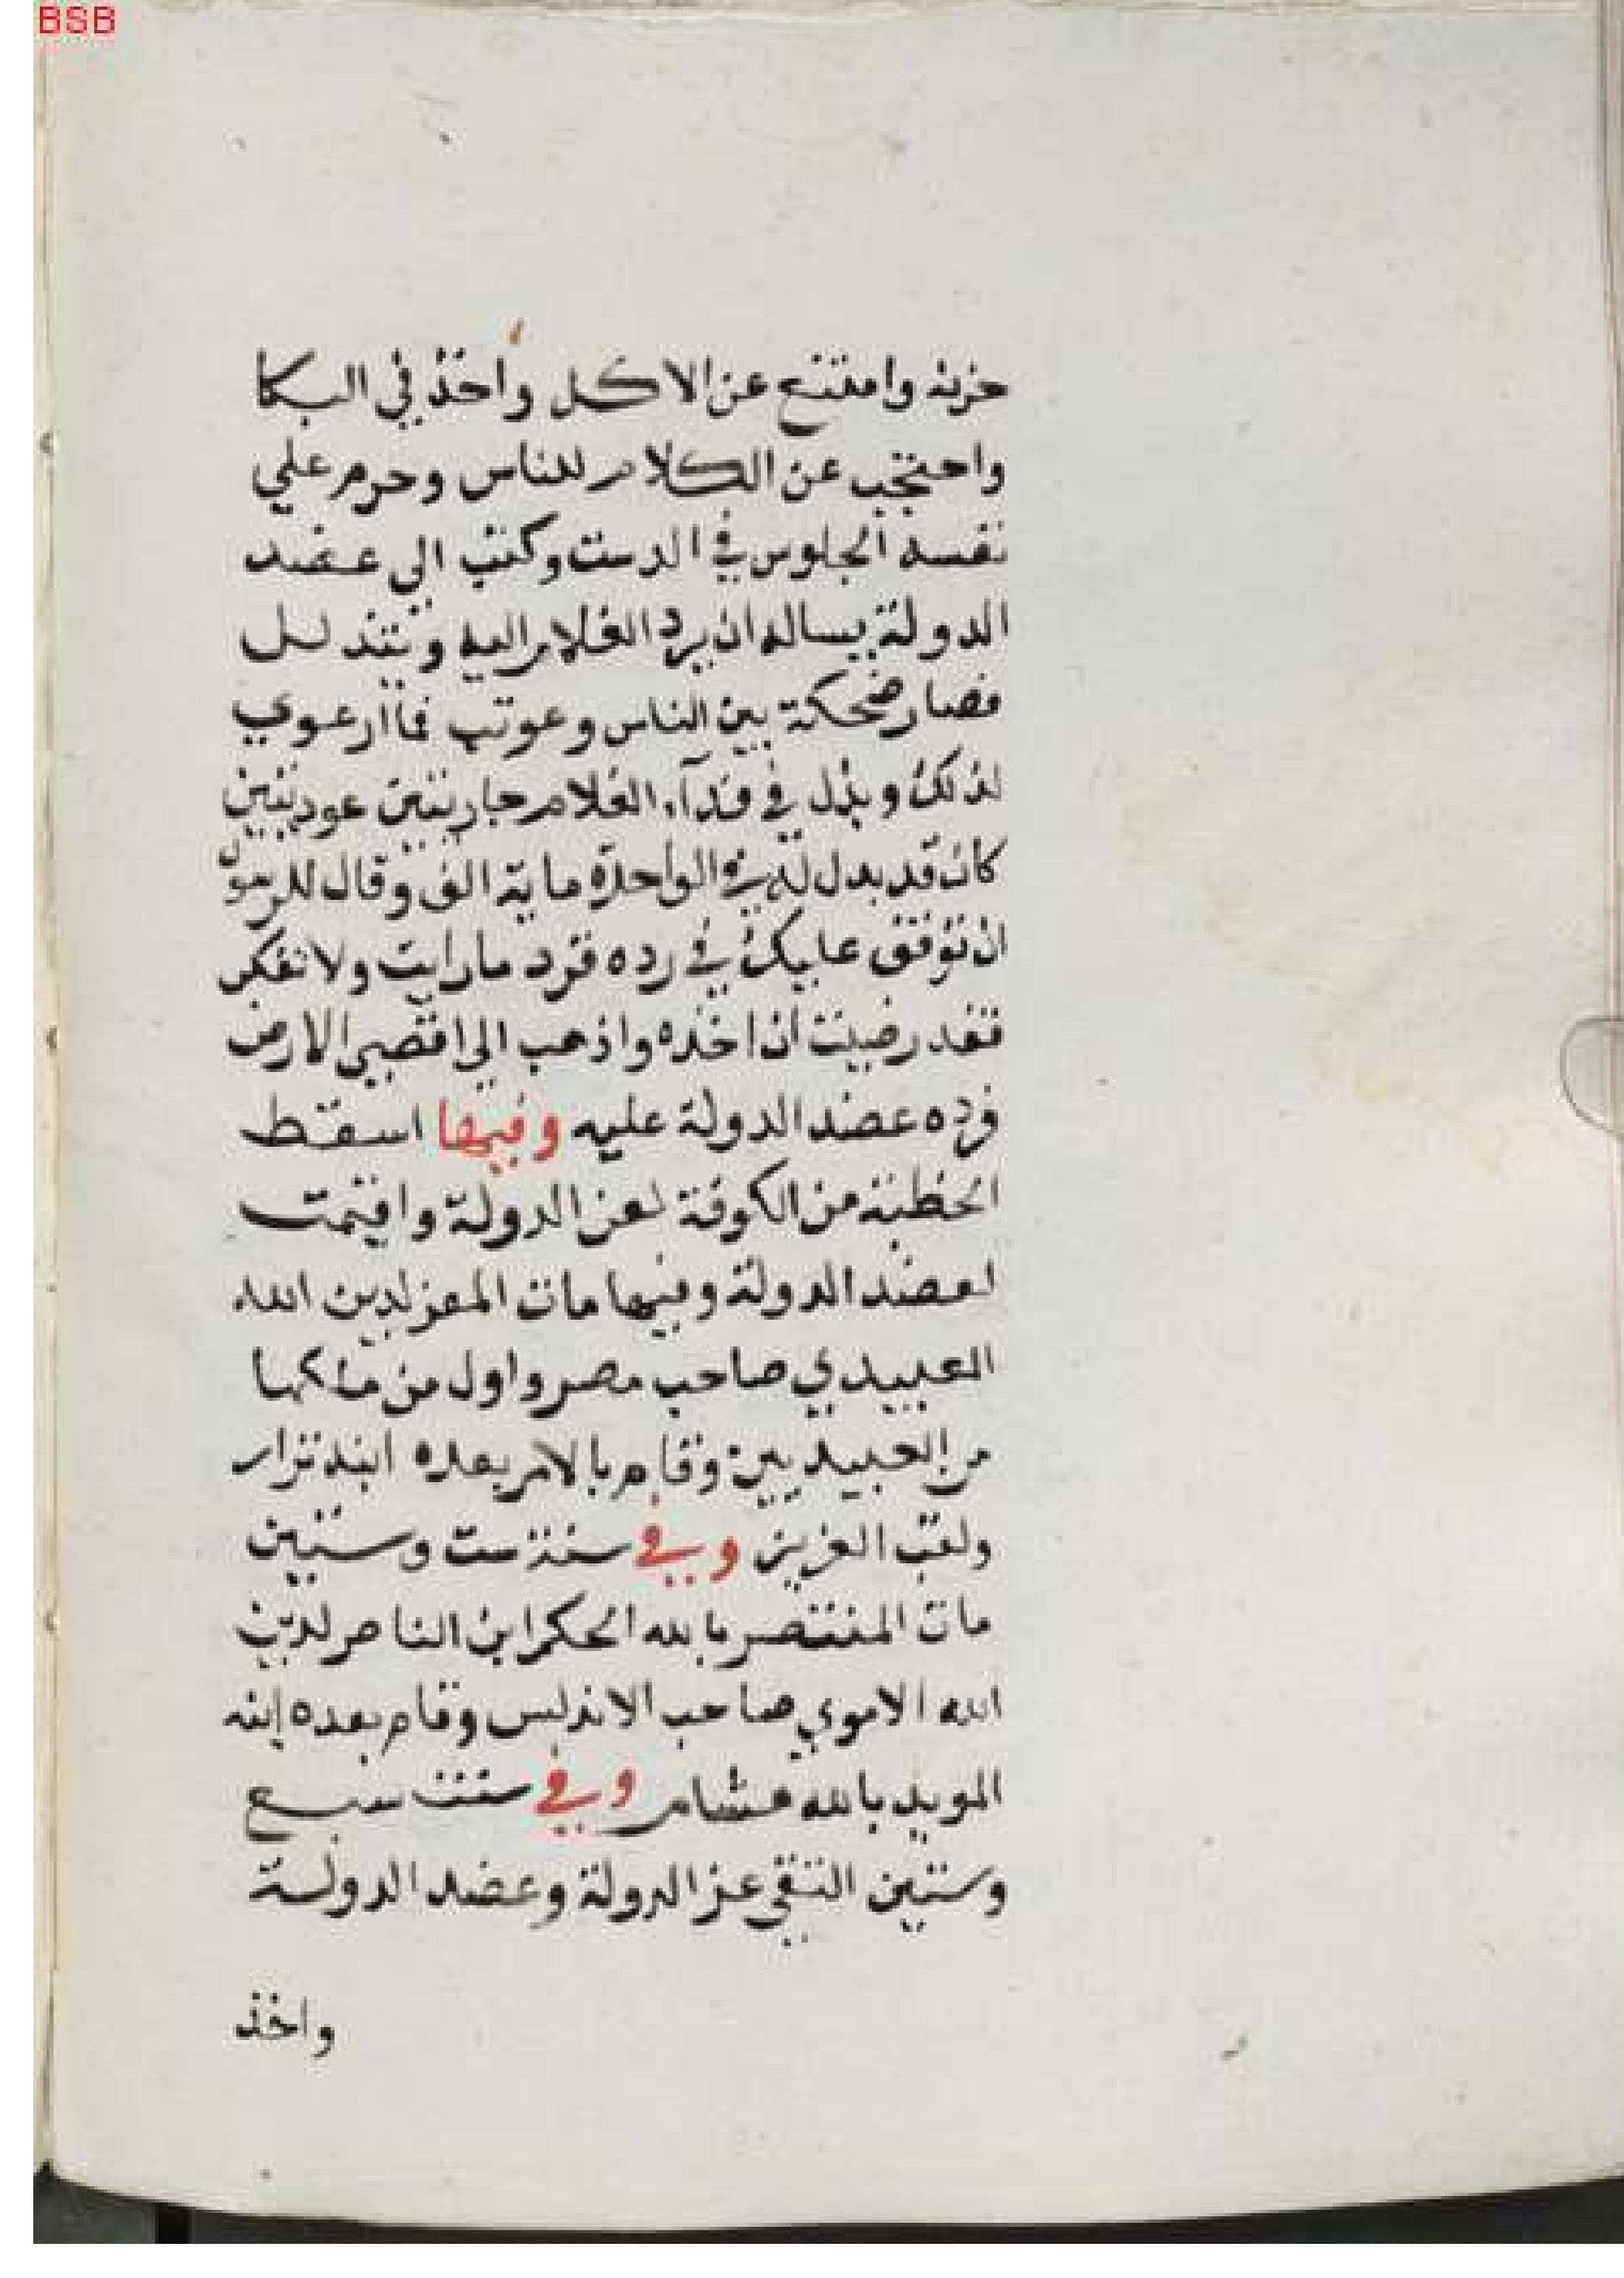 BSB
حزنه وامتنع عن الاكل واخذ في البكا
واحتجب عن الكلام للناس وحرم علي
نفسه الجلوس في الدست وكتب الى عضد
الدولة يساله ان يرد الغلام اليه ويتذلل
فصار ضحكة بين الناس وعوتب فما ارعوي
لذلك وبذل في فدآء الغلام جاريتين عوديتين
كان قد بدل له في الواحدة ماية الف وقال للرسول
ان توقف عليك في رده فزد ما رايت ولا تفكر
فقد رضيت ان اخذه واذهب الى اقصى الارض
فرده عضد الدولة عليه وفيها اسقط
الخطبة من الكوفة لعز الدولة واقيمت
لعضد الدولة وفيها مات المعز لدين الله
العبيدي صاحب مصر واول من ملكها
من العبيديين وقام بالامر بعده ابنه نزار
ولقب العزيز وفي سنة ست وستين
مات المنتصر بالله الحكم ابن الناصر لدين
الله الاموي صاحب الاندلس وقام بعده ابنه
المويد بالله هشام وفي سنت سبع
وستين التقي عز الدولة وعضد الدولة
واخذ